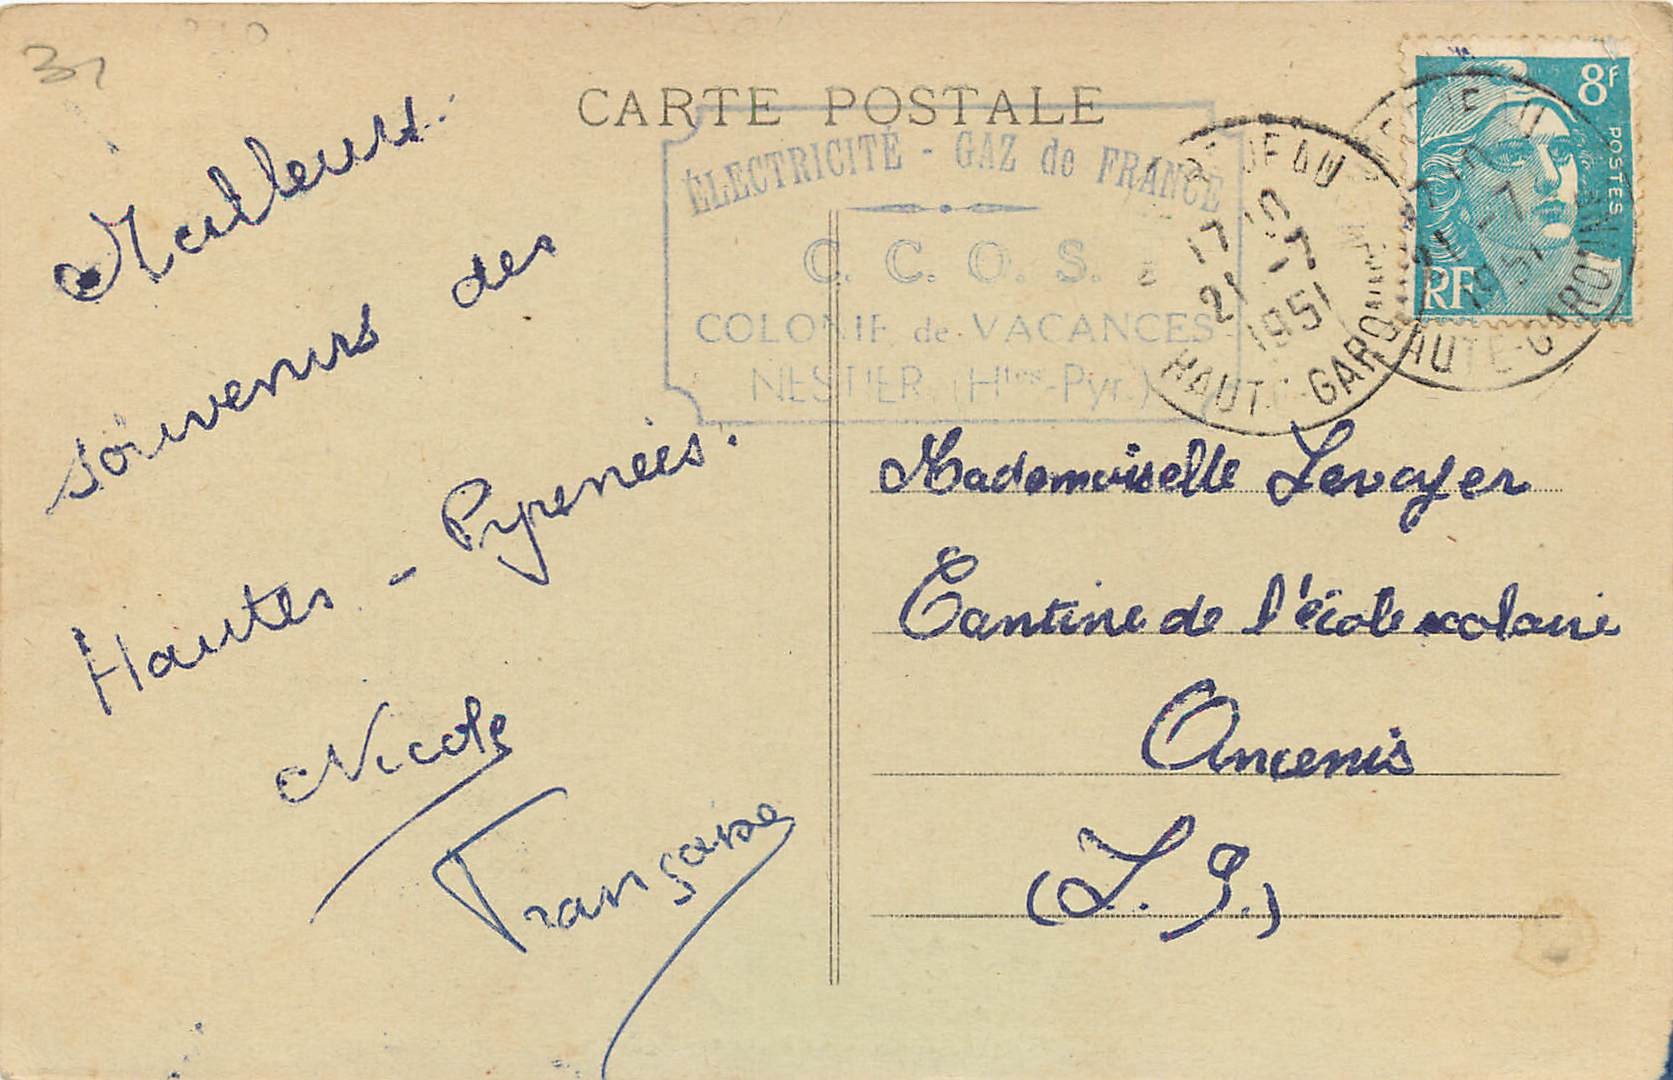 31
CARTE POSTALE
ÉLECTRICITÉ - GAZ de FRANCE
C. C. O. S.
COLONIE de VACANCES
NESTIER (Htes-Pyr.)
17 10
21 -7
1951
HAUTE-GARONNE
21 -7
1951
HAUTE-GARONNE
8F
POSTES
RF
Meilleurs
souvenirs des
Hautes-Pyrenées.
Nicole
Françoise
Mademoiselle Levoyer
Cantine de l'école scolaire
Ancenis
(L. I.)